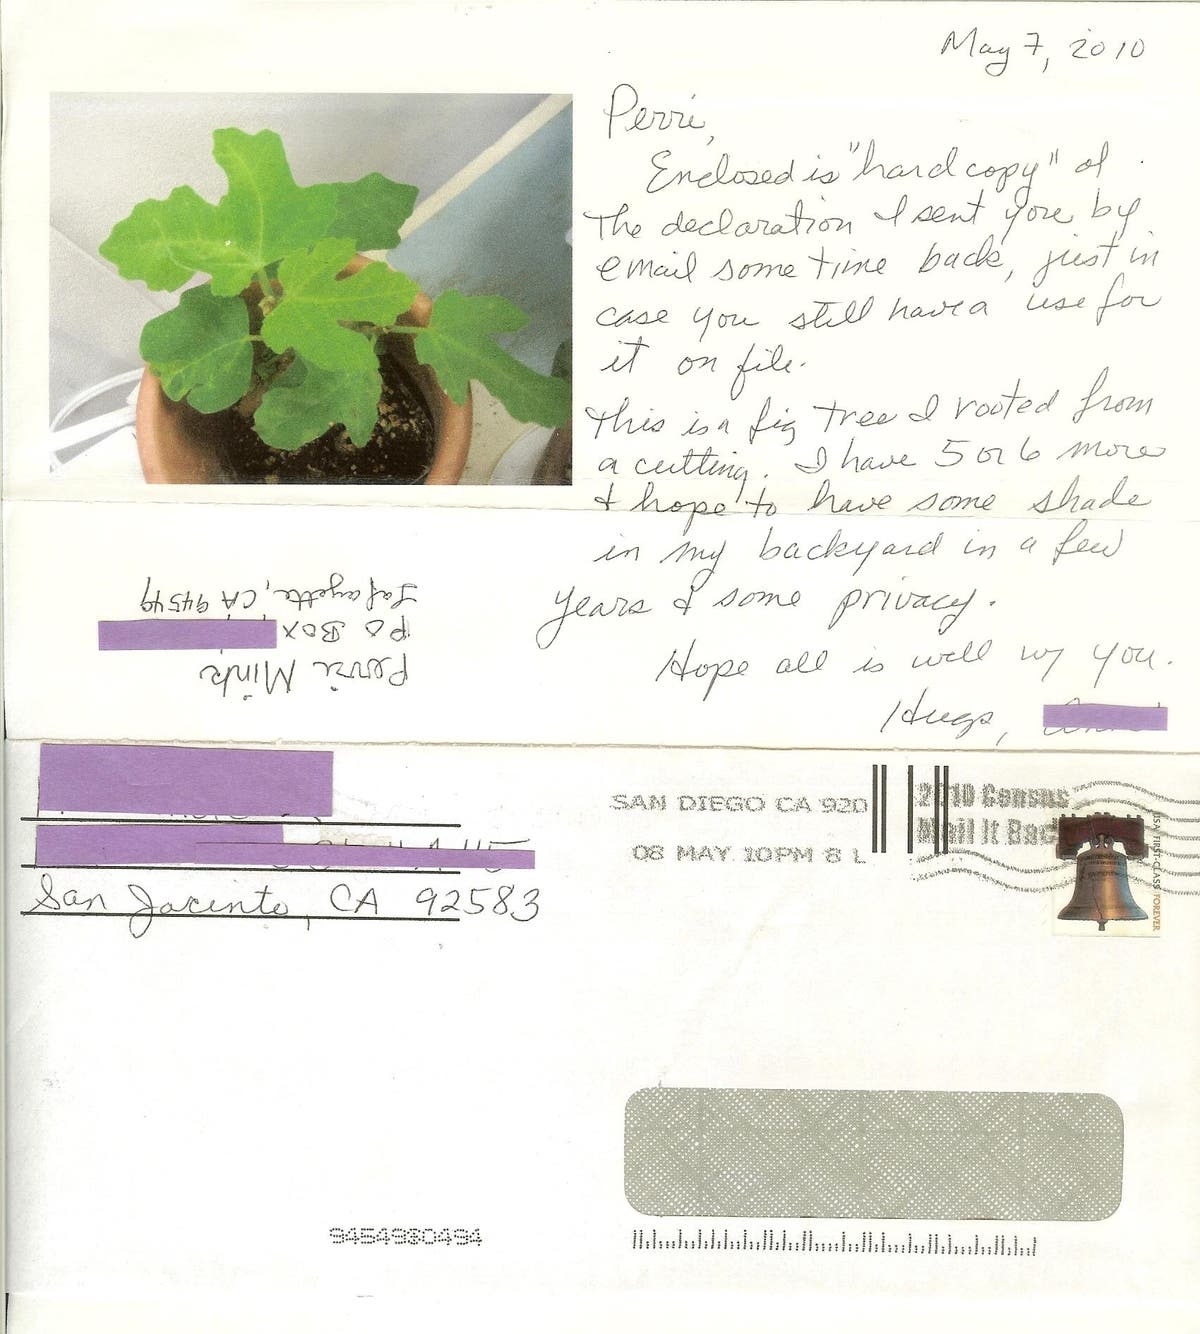 May 7, 2010
Perri,
Enclosed is "hard copy" of
the declaration I sent you by
email some time back, just in
case you still have a use for
it on file.
This is a fig tree I rooted from
a cutting. I have 5 or 6 more
& hope to have some shade
in my backyard in a few
years & some privacy.
Hope all is well w/ you.
Hugs,
Perri Mink
PO Box
Lafayette, CA 94549
San Jacinto, CA 92583
SAN DIEGO CA 920
08 MAY 10PM 8 L
2010 Census
Mail It Bac
USA FIRST-CLASS FOREVER
9454980494